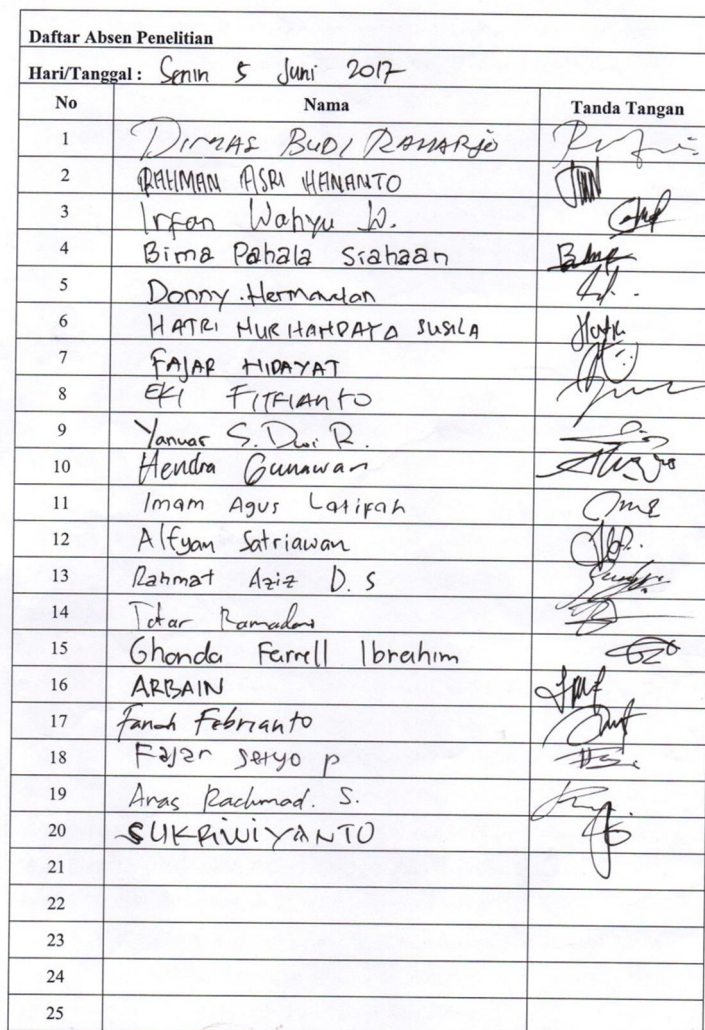 Daftar Absen Penelitian
Hari/Tanggal : Senin 5 Juni 2017
No Nama Tanda Tangan
1 DIMAS BUDI RAHARJO
2 RAHMAN ASRI HANANTO
3 Irfan Wahyu W.
4 Bima Pahala Siahaan
5 Donny Hermawan
6 HATRI NUR HANDAYA SUSILA
7 FAJAR HIDAYAT
8 EKI FITRIANTO
9 Yanuar S. Dwi R.
10 Hendra Gunawan
11 Imam Agus Latifah
12 Alfyan Satriawan
13 Rahmat Aziz D. S
14 Ramadani
15 Ghonda Farrell Ibrahim
16 ARBAIN
17 Febrianto
18 Fajar Setyo p
19 Aras Rachmad. S.
20 SUKRIWIYANTO
21
22
23
24
25